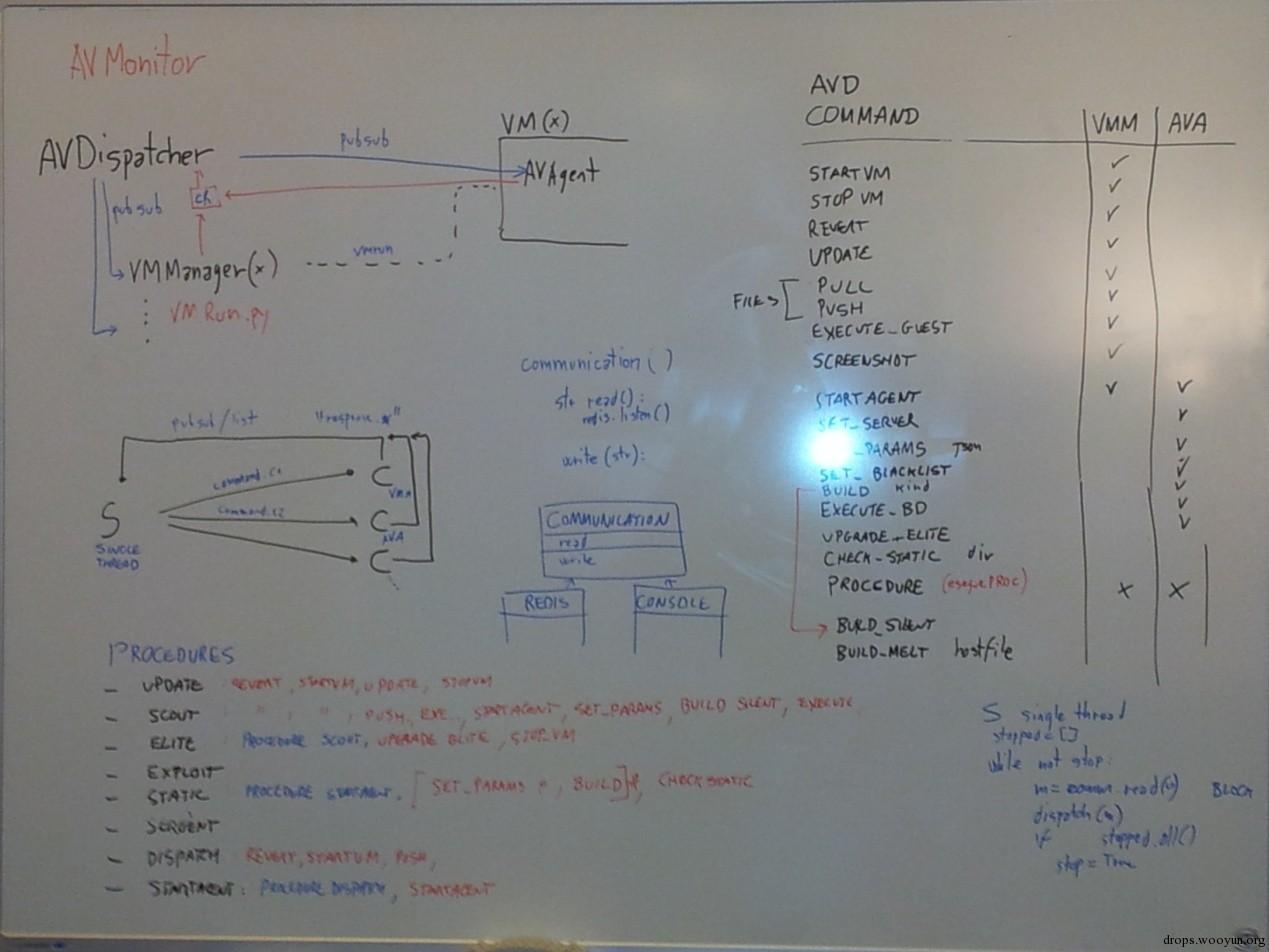 AV Monitor
AVDispatcher
pubsub
VM (x)
AVAgent
pubsub
ch
VMManager(x)
vmrun
VM Run.py
pubsub/list
command.c1
command.c2
S
SINGLE THREAD
C VMM
C AVA
C
communication ( )
str read():
redis.listen()
write (str):
COMMUNICATION
read
write
REDIS
CONSOLE
AVD
COMMAND
VMM AVA
START VM ✓
STOP VM ✓
REVERT ✓
UPDATE ✓
FILES [ PULL ✓
PUSH ✓
EXECUTE_GUEST ✓
SCREENSHOT ✓
START AGENT ✓ ✓
SET_SERVER ✓
_PARAMS Json ✓
SET_BLACKLIST ✓
BUILD kind ✓
EXECUTE_BD ✓
UPGRADE_ELITE ✓
CHECK-STATIC dir
PROCEDURE X X
BUILD_SILENT
BUILD-MELT hostfile
PROCEDURES
- UPDATE REVERT, STARTVM, UPDATE, STOPVM
- SCOUT " , " , PUSH, EXE., STARTAGENT, SET_PARAMS, BUILD SILENT, EXECUTE
- ELITE PROCEDURE SCOUT, UPGRADE ELITE, STOP VM
- EXPLOIT
- STATIC PROCEDURE STARTAGENT, [ SET_PARAMS , BUILD ] , CHECK STATIC
-
- DISPATCH REVERT, STARTVM, PUSH,
- STARTAGENT: PROCEDURE DISPATCH, STARTAGENT
S single thread
stopped = []
while not stop:
m = comm.read() BLOCK
dispatch(m)
if stopped.all()
stop = True
drops.wooyun.org